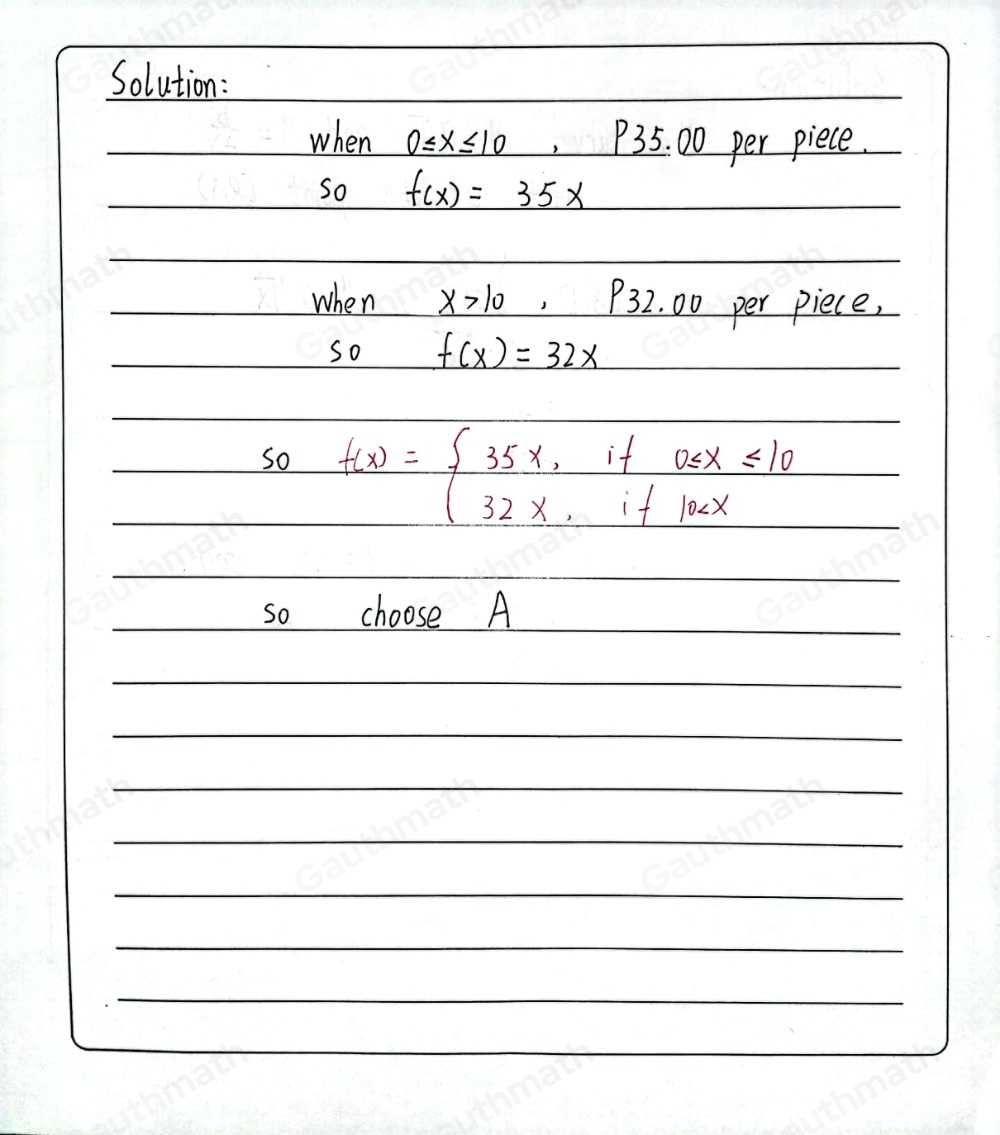 Solution:
when 0≤x≤10 , P35.00 per piece.
so f(x) = 35x
when x>10 , P32.00 per piece,
so f(x) = 32x
so f(x) = { 35x, if 0≤x ≤10
32x, if 10<x
so choose A
Gauthmath